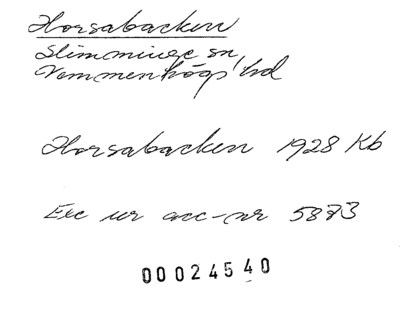 Horsabacken
Slimminge sn
Vemmenhögs hd
Horsabacken 1928 Kb
Exc ur acc-nr 5883
00024540